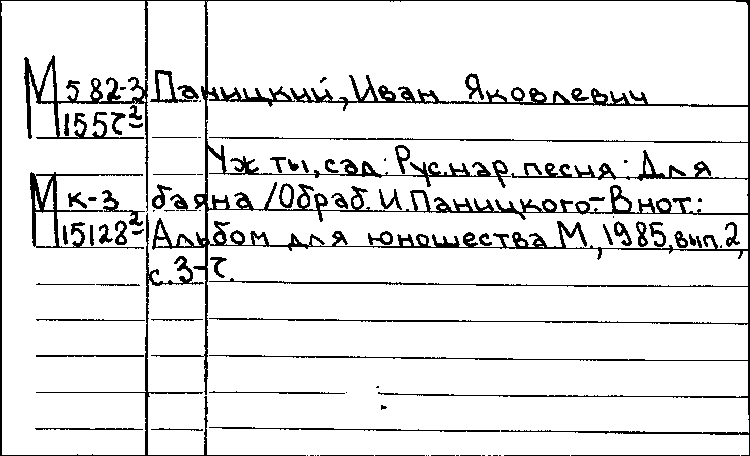 М 582-3 Паницкий, Иван Яковлевич
1557²
Уж ты, сад: Рус. нар. песня: Для
М к-3 баяна /Обраб. И. Паницкого.- В нот.:
15128² Альбом для юношества М., 1985, вып. 2,
с. 3-7.